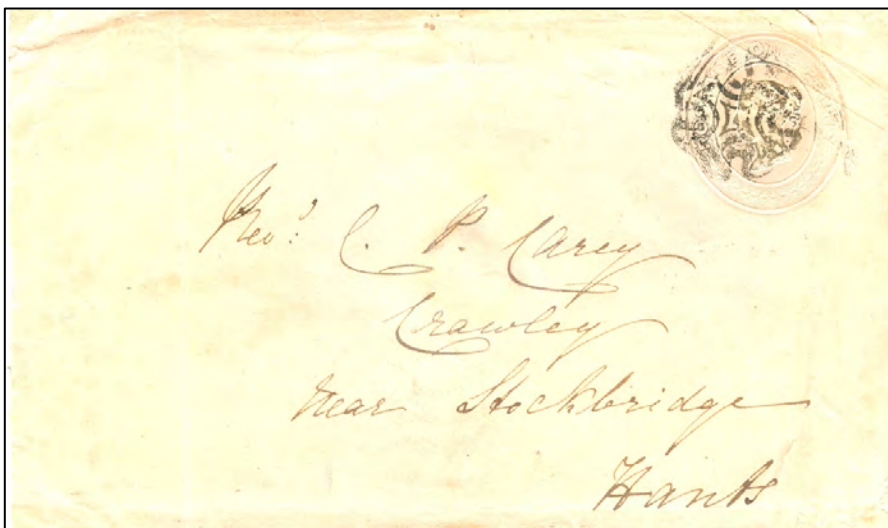 Revd. C. P. Carey
Crawley
Near Stockbridge
Hants